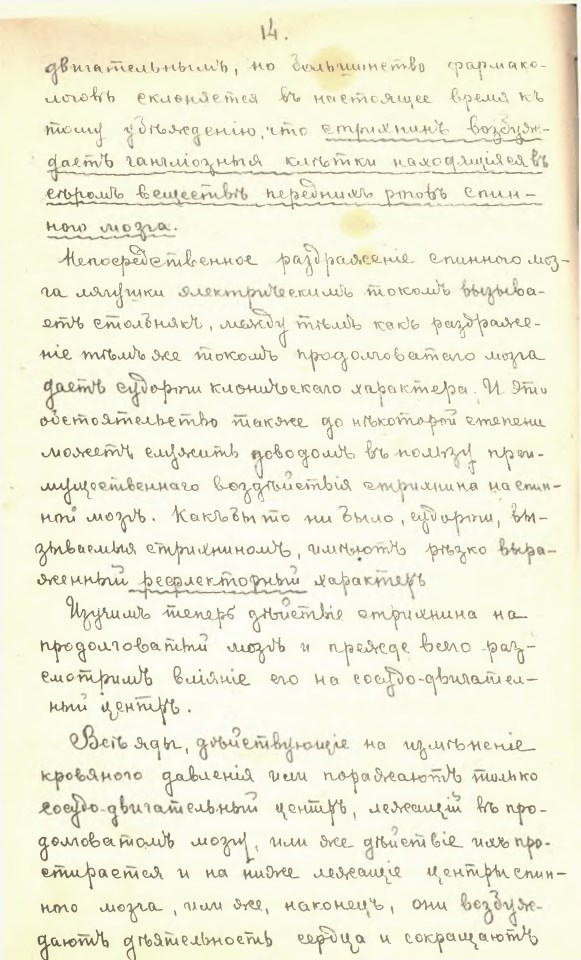 14.
двигательнымъ, но большинство фармако-
логовъ склоняется въ настоящее время къ
тому убѣжденію, что стрихнинъ возбуж-
даетъ гангліозныя клѣтки находящіяся въ
сѣромъ веществѣ переднихъ роговъ спин-
ного мозга.
Непосредственное раздраженіе спинного моз-
га лягушки электрическимъ токомъ вызыва-
етъ столбнякъ, между тѣмъ какъ раздраже-
ніе тѣмъ же токомъ продолговатаго мозга
даетъ судорги клоническаго характера. И это
обстоятельство также до нѣкоторой степени
можетъ служить доводомъ въ пользу преи-
мущественнаго воздѣйствія стрихнина на спин-
ный мозгъ. Какъ бы то ни было, судорги, вы-
зываемыя стрихниномъ, имѣютъ рѣзко выра-
женный рефлекторный характеръ
Изучимъ теперь дѣйствіе стрихнина на
продолговатый мозгъ и прежде всего раз-
смотримъ вліяніе его на сосудо-двигатель-
ный центръ.
Всѣ яды, дѣйствующіе на измѣненіе
кровяного давленія или поражаютъ только
сосудо-двигательный центръ, лежащій въ про-
долговатомъ мозгу, или же дѣйствіе ихъ про-
стирается и на ниже лежащіе центры спин-
ного мозга, или же, наконецъ, они возбуж-
даютъ дѣятельность сердца и сокращаютъ